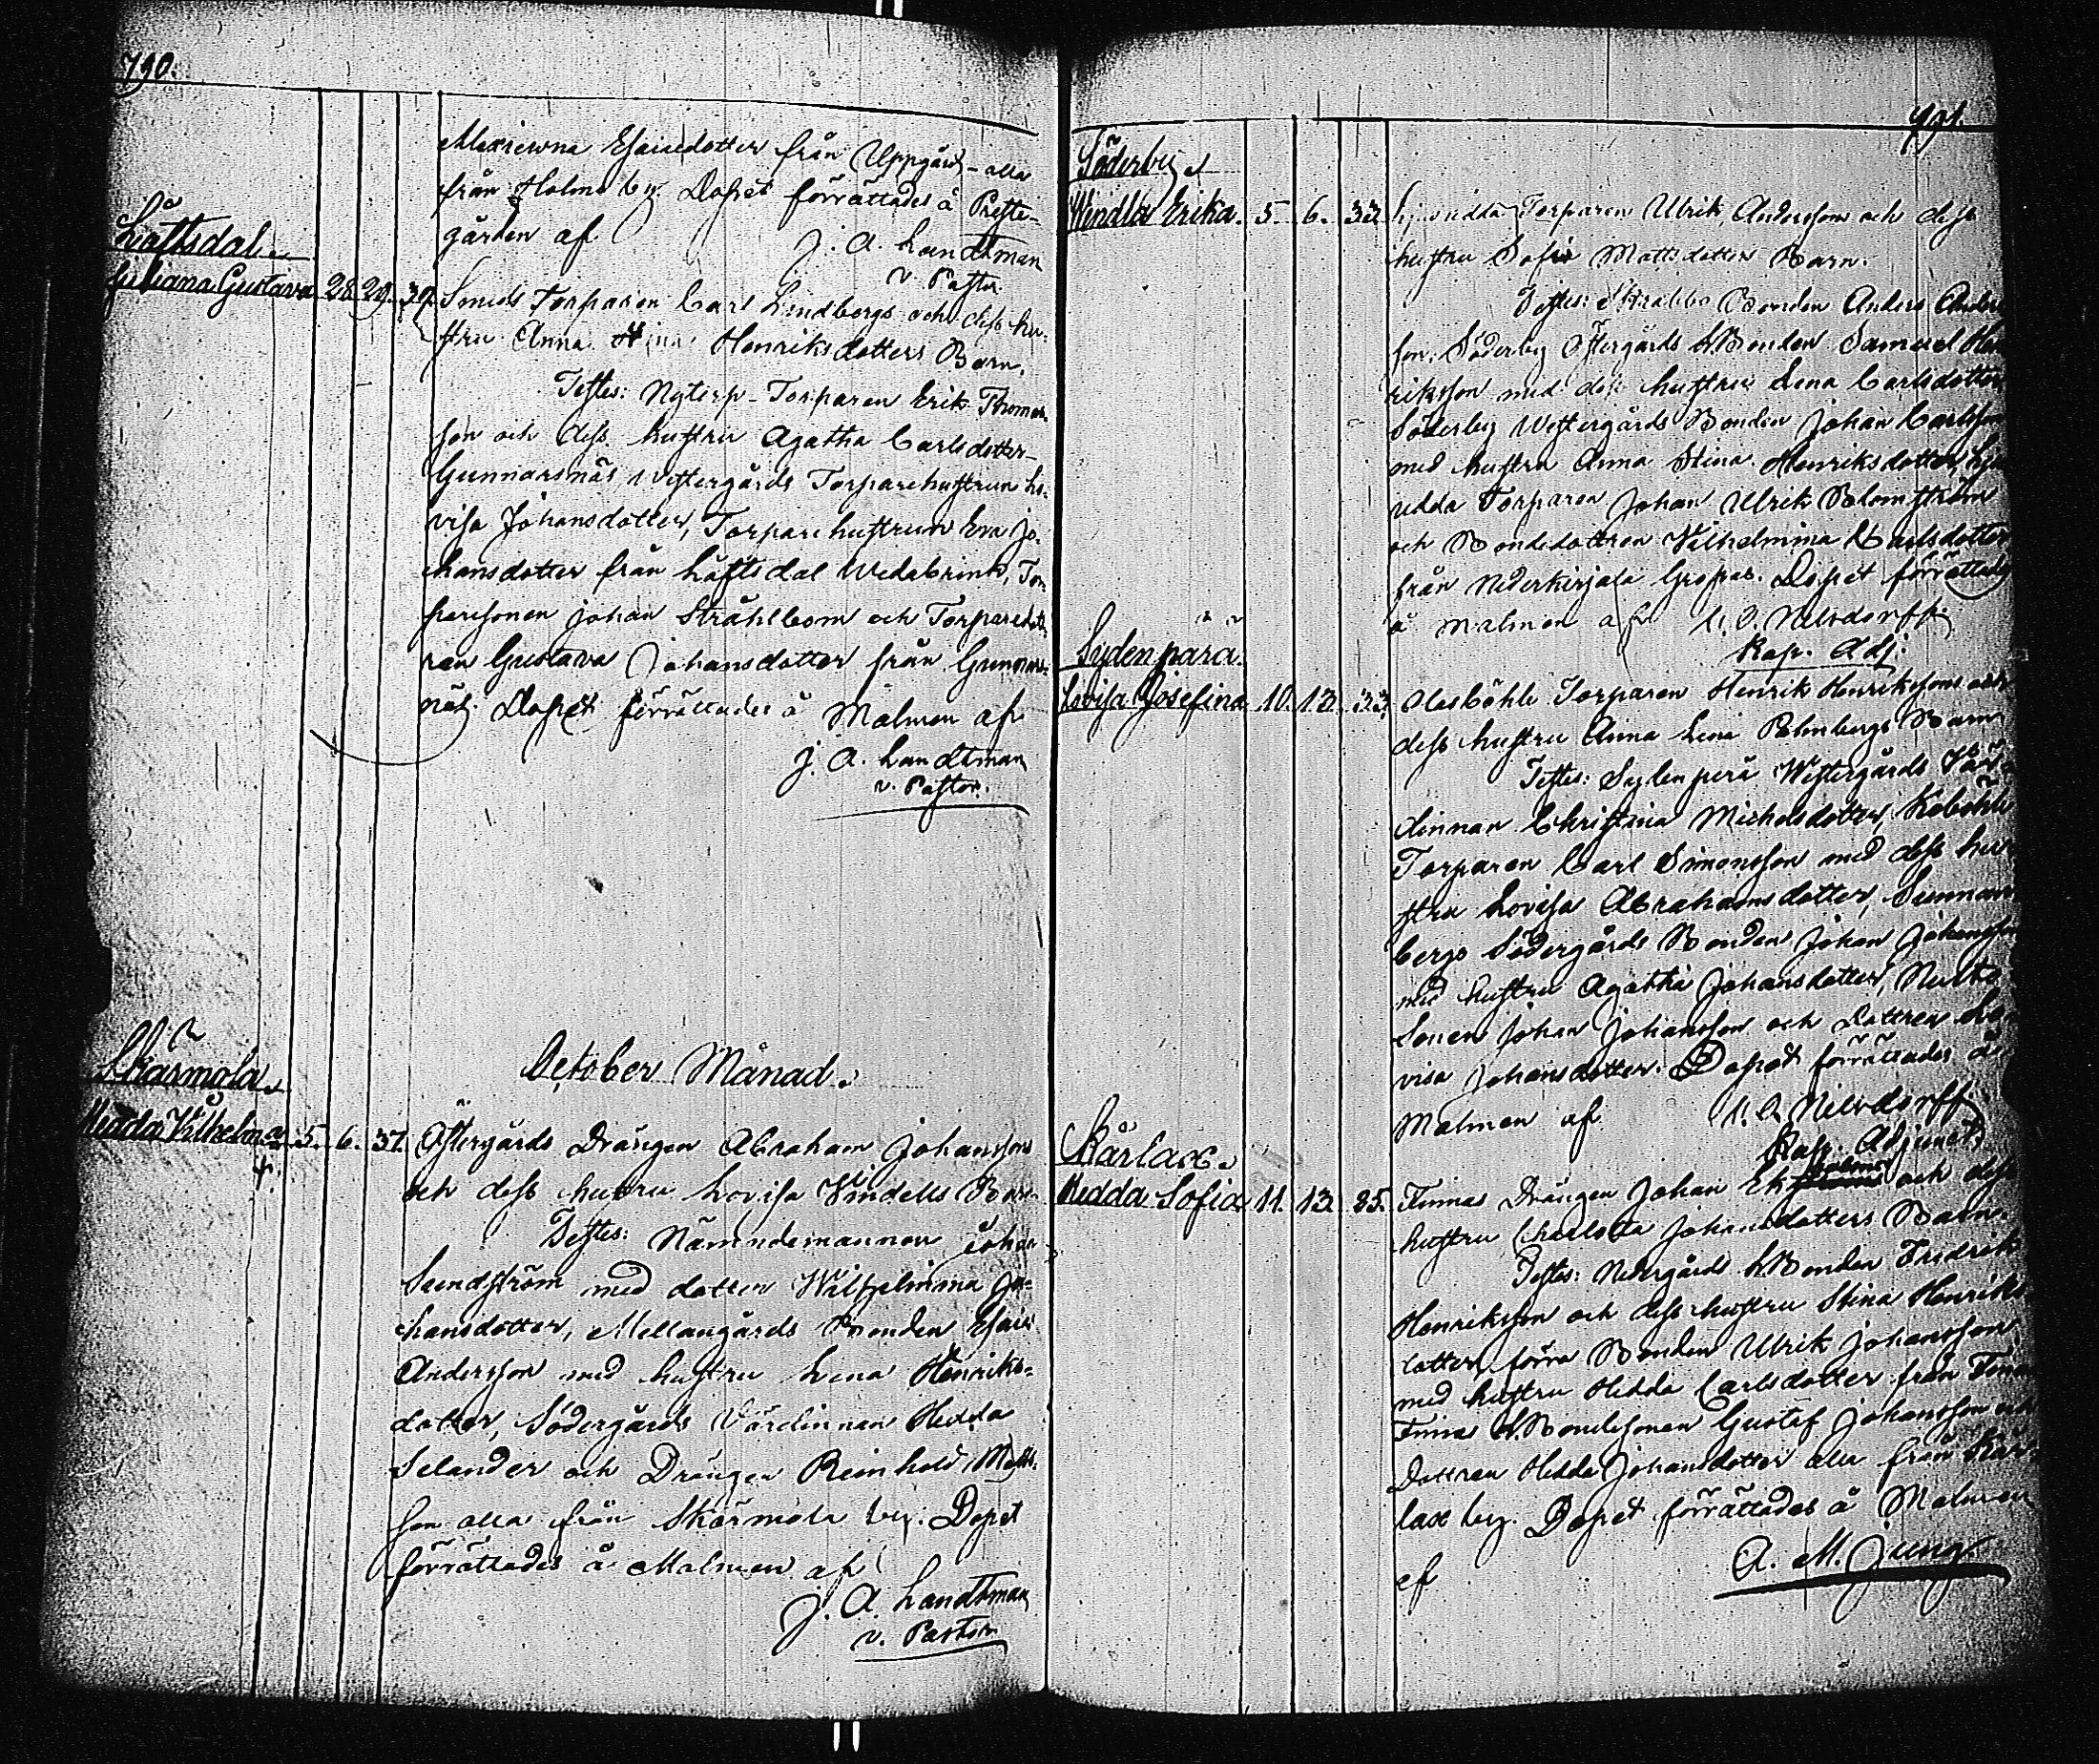 790.
Mariewna Esaiedotter från Uppgård - alla
från Holms by. Dopet förrättades å Preste-
gården af J. A. Landtman
v. Pastor.
Låftsdal.
Juliana Gustava 28. 29. 39. Smeds Torparen Carl Lindbergs och dess hu-
stru Anna Stina Henriksdotters Barn.
Testes: Nytorp-Torparen Erik Thomas-
son och dess hustru Agatha Carlsdotter -
Gunnarsnäs Westergårds Torparehustrun Lo-
visa Johansdotter, Torparehustrun Eva Jo-
hansdotter från Låftsdal Wedabrink, Tor-
paresonen Johan Stråhlbom och Torparedott-
ren Gustava Johansdotter från Gunnars-
näs. Dopet förrättades å Malmen af
J. A. Landtman
v. Pastor.
October Månad.
Skärmola.
Hedda Vilhelmina 5. 6. 37. Östergårds Drängen Abraham Johansson
och dess hustru Lovisa Vindells Barn.
Testes: Nämndemannen Johan
Sundström med dotter Wilhelmina Jo-
hansdotter, Mellangårds Bonden Esaias
Andersson med hustru Lena Henriks-
dotter, Södergårds Värdinnan Hedda
Selander och Drängen Reinhold Matts-
son alla från Skärmola by. Dopet
förrättades å Malmen af
J. A. Landtman
v. Pastor
791.
Söderby.
Wendla Erika. 5. 6. 33. Torparen Ulrik Anderssons och dess
hustru Sofia Mattsdotters Barn.
Testes: Bonden Anders Anders-
son, Söderby Östergårds L.Bonden Samuel Hen-
riksson med dess hustru Lena Carlsdotter
Söderby Westergårds Bonden Johan Carlsson
med hustru Anna Stina Henriksdotter,
udda Torparen Johan Ulrik Blomström
och Bondedottren Vilhelmina Carlsdotter
från Nederkirjala Gropas. Dopet förrättades
å Malmen af
Kap. Adj.
Sydenperä.
Lovisa Josefina 10. 13. 33. Olasböhle Torparen Henrik Henrikssons och
dess hustru Anna Lena Palmbergs Barn
Testes: Sydenperä Westergårds Vär-
dinnan Christina Michelsdotter,
Torparen Carl Simonsson med dess hu-
stru Lovisa Abrahamsdotter, Sunnan-
bergs Södergårds Bonden Johan Johansson
med hustru Agatha Johansdotter,
Sonen Johan Johansson och Dottren Lo-
visa Johansdotter. Dopet förrättades å
Malmen af
Kap. Adjunct.
Kärlax.
Hedda Sofia 11. 13. 25. Finnas Drängen Johan Ekholms och dess
hustru Charlotta Johansdotters Barn.
Testes: Nedergårds L.Bonden Fredrik
Henriksson och dess hustru Stina Henriks-
dotter, förra Bonden Ulrik Johansson
med hustru Hedda Carlsdotter från Finnas
Finnas L.Bondesonen Gustaf Johansson och
Dottren Hedda Johansdotter alla från Kär-
lax by. Dopet förrättades å Malmen
af A. M. Jung